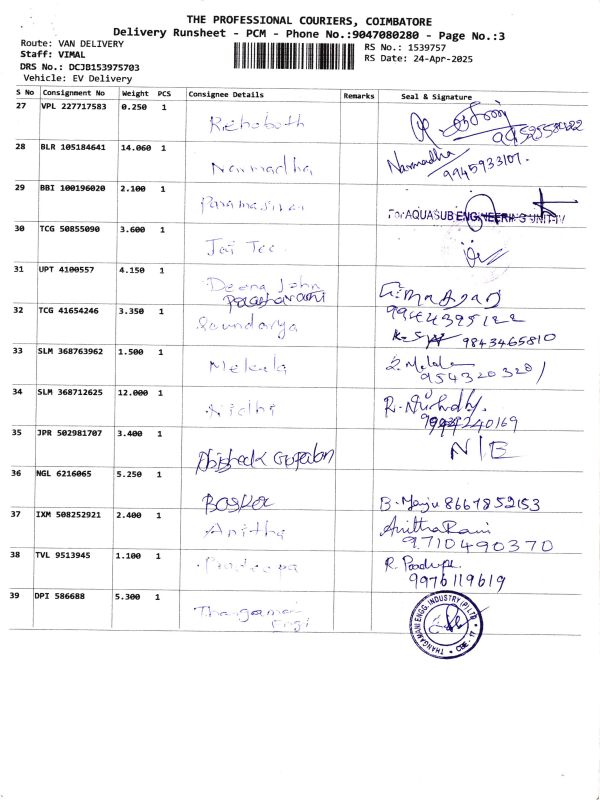 THE PROFESSIONAL COURIERS, COIMBATORE
Delivery Runsheet - PCM - Phone No.:9047080280 - Page No.:3
Route: VAN DELIVERY
RS No.: 1539757
Staff: VIMAL
RS Date: 24-Apr-2025
DRS No.: DCJB153975703
Vehicle: EV Delivery
S No Consignment No Weight PCS Consignee Details Remarks Seal & Signature
27 VPL 227717583 0.250 1
Rehoboth
28 BLR 105184641 14.060 1
Narmadha Narmadha
9945933107.
29 BBI 100196020 2.100 1
Paramasivan For AQUASUB ENGINEERING UNIT-IV
30 TCG 50855090 3.600 1
Jai Tec
31 UPT 4100557 4.150 1
Deena John
32 TCG 41654246 3.350 1
9944395122
Soundarya
9843465810
33 SLM 368763962 1.500 1
Mekala
9543203201
34 SLM 368712625 12.000 1
Nidhi
35 JPR 502981707 3.400 1
N/E
Abisheck Gopalan
36 NGL 6216065 5.250 1
Baskar B. Manju 8667852153
37 IXM 508252921 2.400 1
Anitha Anitha Rani
9710490370
38 TVL 9513945 1.100 1
Pradeepa
9976119619
39 DPI 586688 5.300 1
Thangamani
Engi
THANGAMANI ENGG. INDUSTRY (P) LTD * CBE - 17 *